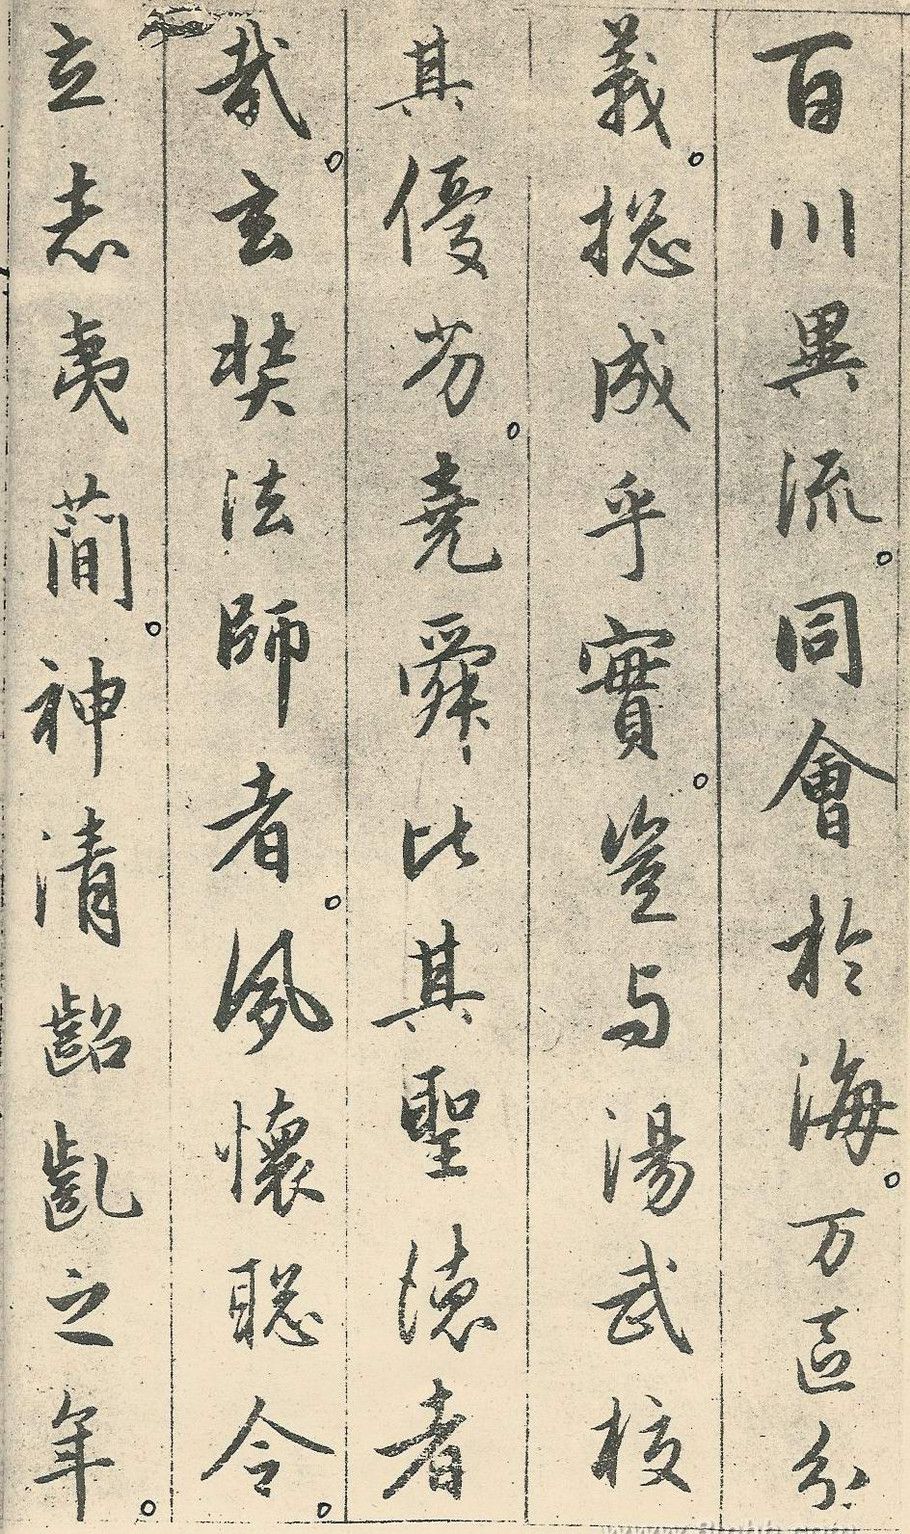 百川異流。同會於海。万區分
義。揔成乎實。豈与湯武校
其優劣。堯舜比其聖德者
哉。玄奘法師者。夙懷聡令。
立志夷蕳。神清齠齔之年。